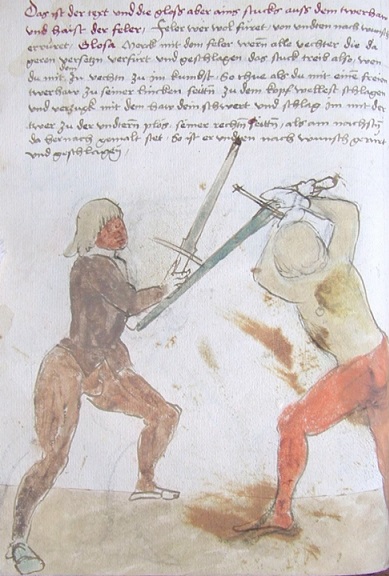 Das ist der text und die glosß aber ains stucks auß dem twerhaw
und haist der feler / Feler wer wol füret · von undten nach wunsch
er rüret / Glosa Merck mit dem feler wern alle vechter die da
geren versetzn verfürt und geschlagen / das stuck treib also / wen
du mit zu vechtn zu im kumbst / So thue als du mit einē freyen
twerhaw zu seiner lincken seittn zu dem kopf wellest schlagen
und verzuck mit dem haw dein schwert und schlag im mit der
twer zu der undtern plöß seiner rechtn seittn / als am nachstn
da hernach gemalt stet / So ist er undten nach wunsch gerürt
und geschlagen /